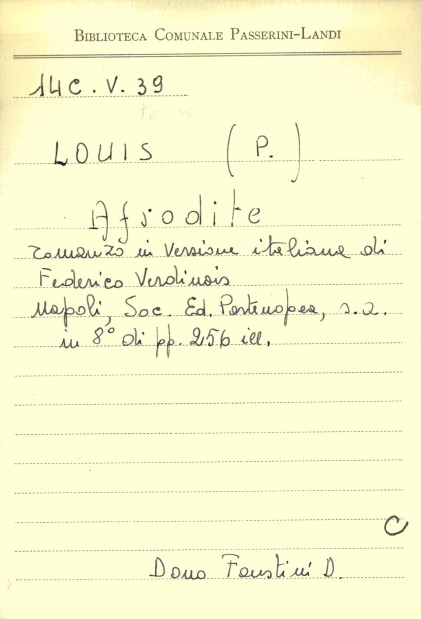 BIBLIOTECA COMUNALE PASSERINI-LANDI
14C.V.39
LOUIS (P.)
Afrodite
romanzo in versione italiana di
Federico Verdinois
Napoli, Soc. Ed. Partenopea, s.a.
in 8° di pp. 256 ill.
C
Dono Faustini D.